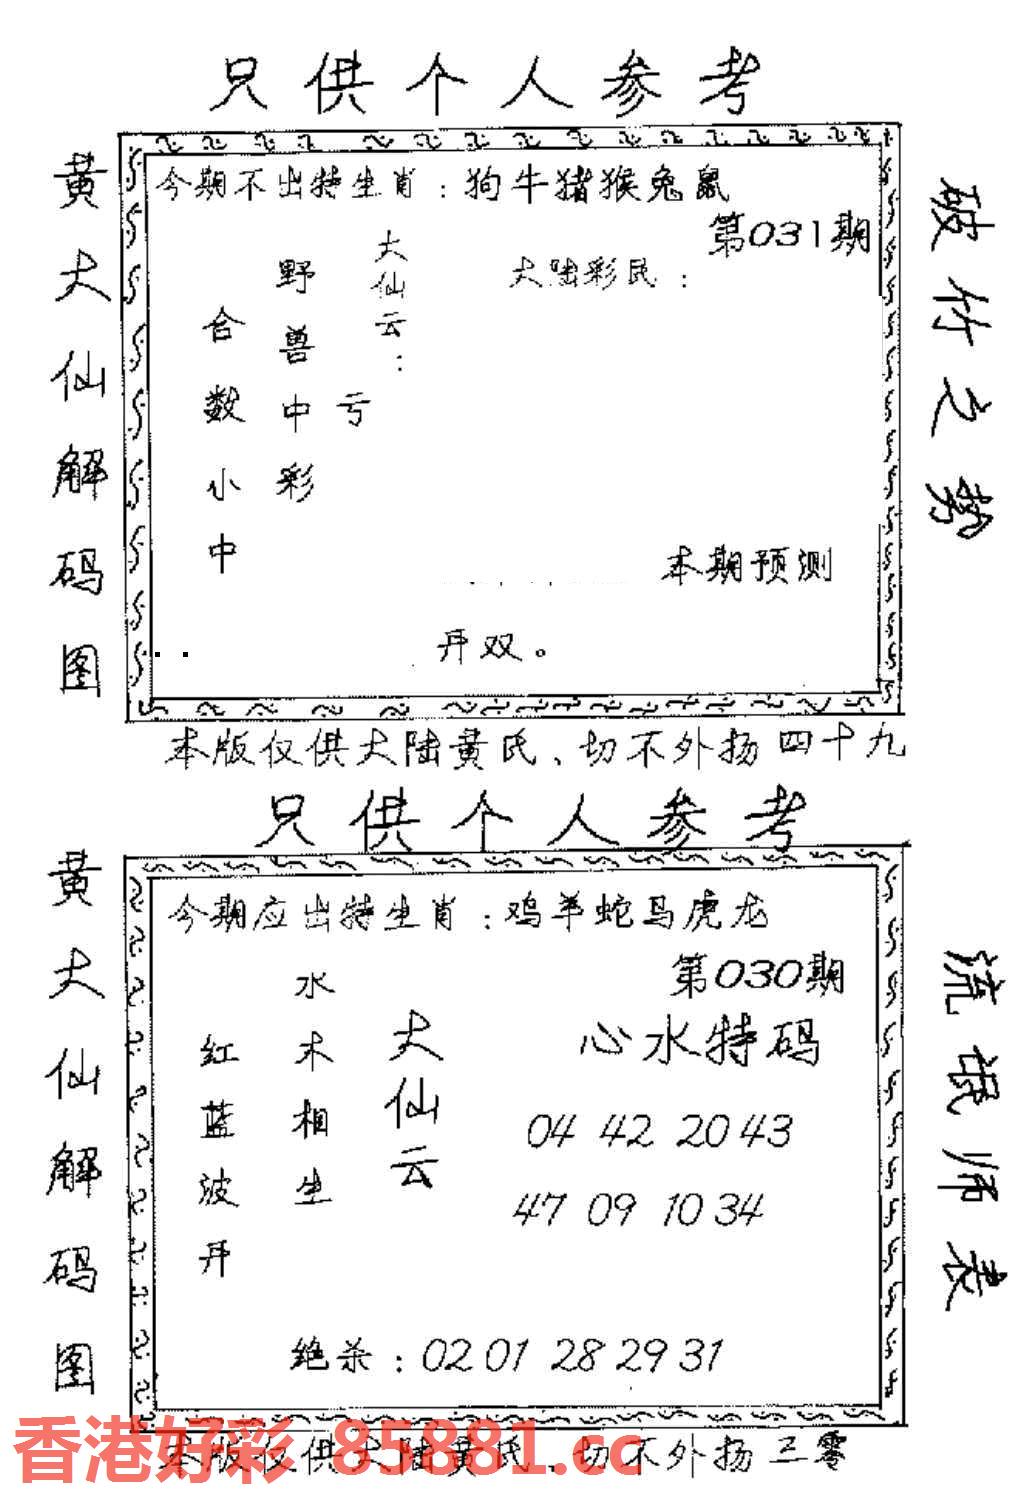 只供个人参考
黄大仙解码图
今期不出特生肖：狗牛猪猴兔鼠
第031期
大陆彩民：
大仙云：
亏
野兽中彩
合数小中
本期预测
开双。
破竹之势
本版仅供大陆黄氏、切不外扬四十九
只供个人参考
黄大仙解码图
今期应出特生肖：鸡羊蛇马虎龙
第030期
心水特码
04 42 20 43
47 09 10 34
大仙云
水木相生
红蓝波开
绝杀：02 01 28 29 31
流氓师表
本版仅供大陆黄氏、切不外扬三零
香港好彩 85881.cc